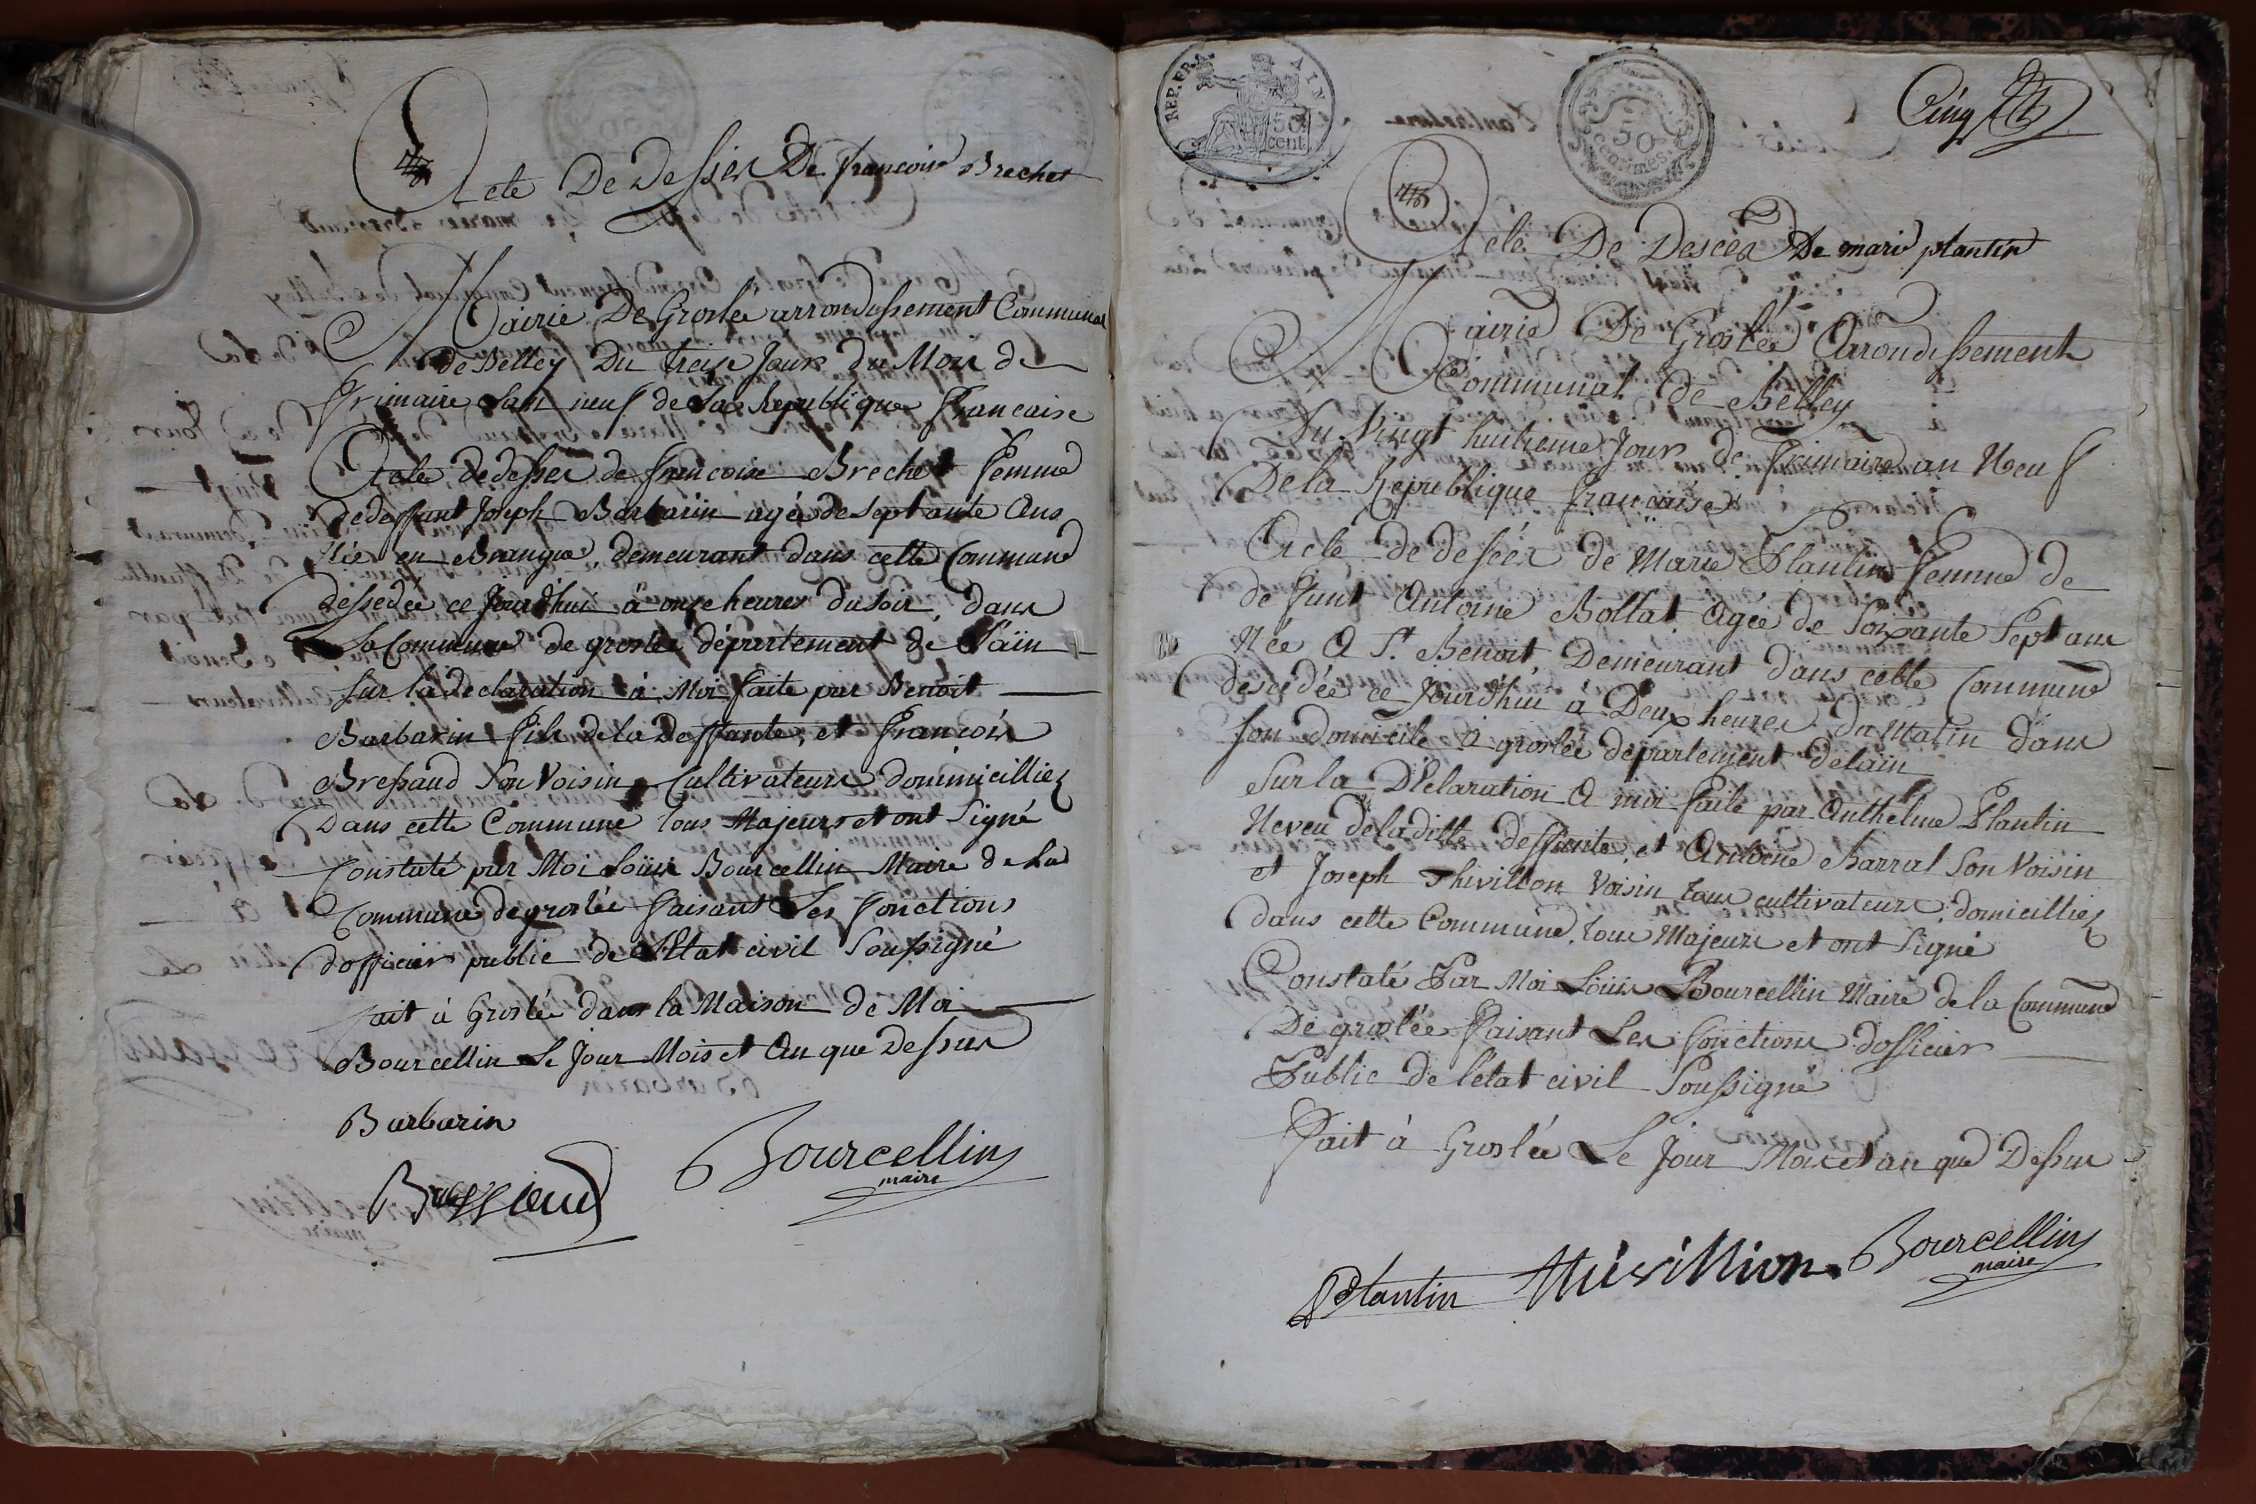 Acte De Desses De francoise Brechet
Mairie De Groslée arrondissement Communal
de Belley Du treize Jours du Mois de
Frimaire Lan neuf de La Republique Francaise
Acte de desses de francoise Brechet Femme
de deffant Joseph Barbarin agée de septante Ans
Née en Brangue, demeurant dans cette Commune
dessedée ce Jourdhui à onze heures du soir dans
La Commune de groslée département de L'ain
sur la declaration à Moi faite par Benoit
Barbarin fils de la Deffante, et François
Bressaud son Voisin Cultivateurs dommicilliez
Dans cette Commune tous Majeurs et ont Signé
Constaté par Moi Loüis Bourcellin Maire de La
Commune de groslée faisant Les fonctions
dofficier public de L'Etat civil Soussigné
fait à Groslée dans la Maison de Moi
Bourcellin Le Jour Mois et An que Dessus
Barbarin
Bressaud
Bourcellin
maire
REP. FRA
50
cent
50
centimes
Cinq
Acte De Descès De marie plantin
Mairie De Groslée Arrondissement
Communal de Belley
Du Vingt huitieme Jour de Frimaire an Neuf
De la Republique francaise
Acte de descès de Marie Plantin femme de
defunt Antoine Bollat Agée de Soixante Sept ans
Née A St. Benoit, Demeurant dans cette Commune
descedée ce Jourdhui à Deux heures du Matin dans
son domicile à groslée département de lain
sur la Déclaration A moi faite par Anthelme Plantin
Neveu de la ditte deffunte, et Antoine charral Son Voisin
et Joseph thivillon Voisin tous cultivateurs domicilliez
dans cette Commune, tous Majeurs et ont Signé
Constaté Par Moi Loüis Bourcellin Maire de la Commune
De groslée faisant Les fonctions dofficier
Public de l'état civil Soussigné
Fait à Groslée Le Jour Mois et an que Dessus
Plantin
thivillion
Bourcellin
maire